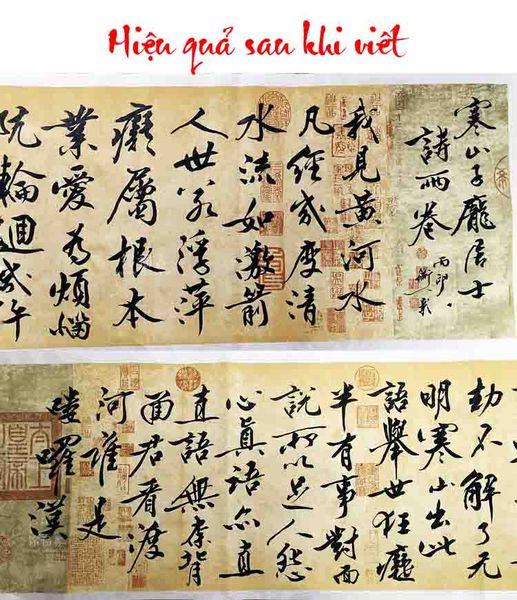 Hiện quả sau khi viết
寒山子龐居士
詩兩卷
我見黃河水
凡經幾度清
水流如激箭
人世若浮萍
癡屬根本
業愛為煩惱
阬輪迴幾
劫不解了无
明寒山出此
語舉世狂癡
半有事對面
說所以足人怨
心真語亦直
直語無背
面君看渡
河誰是
嘍囉漢